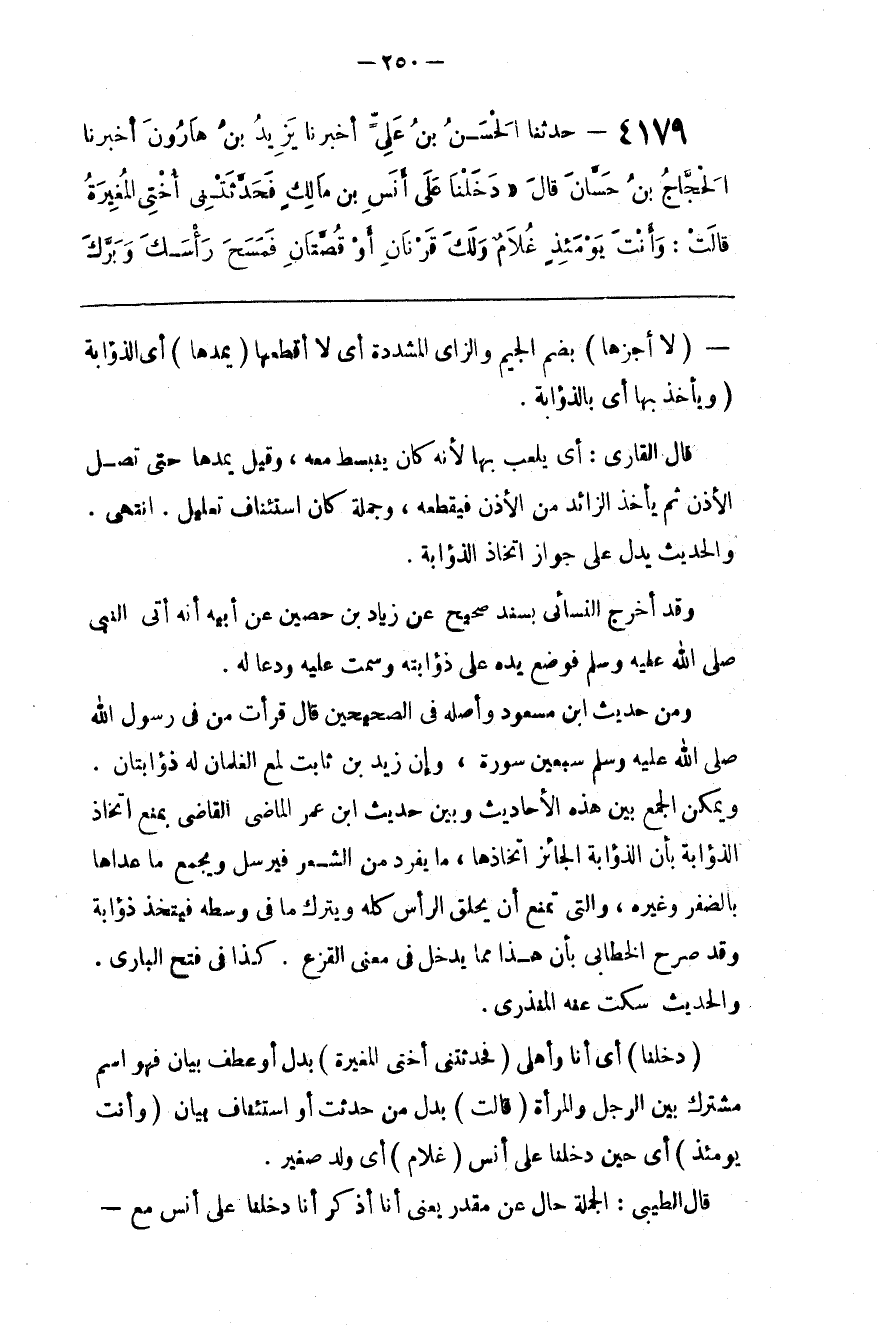 — ٢٥٠ —
٤١٧٩ — حدثنا الحْسَـنُ بنُ عَلِيٍّ أخبرنا يَزِيدُ بنُ هارُونَ أخبرنا
الْحجَّاجُ بنُ حَسَّانَ قالَ « دَخَلْنَا عَلَى أَنَسِ بنِ مالِكٍ فَحَدَّثَتْـنِى أُخْتِى المُغِيرَةُ
قالَتْ : وَأَنْتَ يَوْمَئِذٍ غُلَامٌ وَلَكَ قَرْنَانِ أَوْ قُصَّتَانِ فَمَسَحَ رَأْسَـكَ وَبَرَّكَ
— ( لا أجزها ) بضم الجيم والزاى المشددة أى لا أقطعها ( يمدها ) أى الذؤابة
( ويأخذ بها أى بالذؤابة .
قال القارى : أى يلعب بها لأنه كان ينبسط معه ، وقيل يمدها حتى تصـل
الأذن ثم يأخذ الزائد من الأذن فيقطعه ، وجملة كان استئناف تعليل . انتهى .
والحديث يدل على جواز اتخاذ الذؤابة .
وقد أخرج النسائى بسند صحيح عن زياد بن حصين عن أبيه أنه أتى النبى
صلى الله عليه وسلم فوضع يده على ذؤابته وسمت عليه ودعا له .
ومن حديث ابن مسعود وأصله فى الصحيحين قال قرأت من فى رسول الله
صلى الله عليه وسلم سبعين سورة ، وإن زيد بن ثابت لمع الغلمان له ذؤابتان .
ويمكن الجمع بين هذه الأحاديث وبين حديث ابن عمر الماضى القاضى بمنع اتخاذ
الذؤابة بأن الذؤابة الجائز اتخاذها ، ما يفرد من الشـعر فيرسل ويجمع ما عداها
بالضفر وغيره ، والتى تمنع أن يحلق الرأس كله ويترك ما فى وسطه فيتخذ ذؤابة
وقد صرح الخطابى بأن هـذا مما يدخل فى معنى القزع . كـذا فى فتح البارى .
والحديث سكت عنه المنذرى .
( دخلنا ) أى أنا وأهلى ( فحدثتنى أختى المغيرة ) بدل أو عطف بيان فهو اسم
مشترك بين الرجل والمرأة ( قالت ) بدل من حدثت أو استئناف بيان ( وأنت
يومئذ ) أى حين دخلنا على أنس ( غلام ) أى ولد صغير .
قال الطيبى : الجملة حال عن مقدر يعنى أنا أذكر أنا دخلنا على أنس مع —